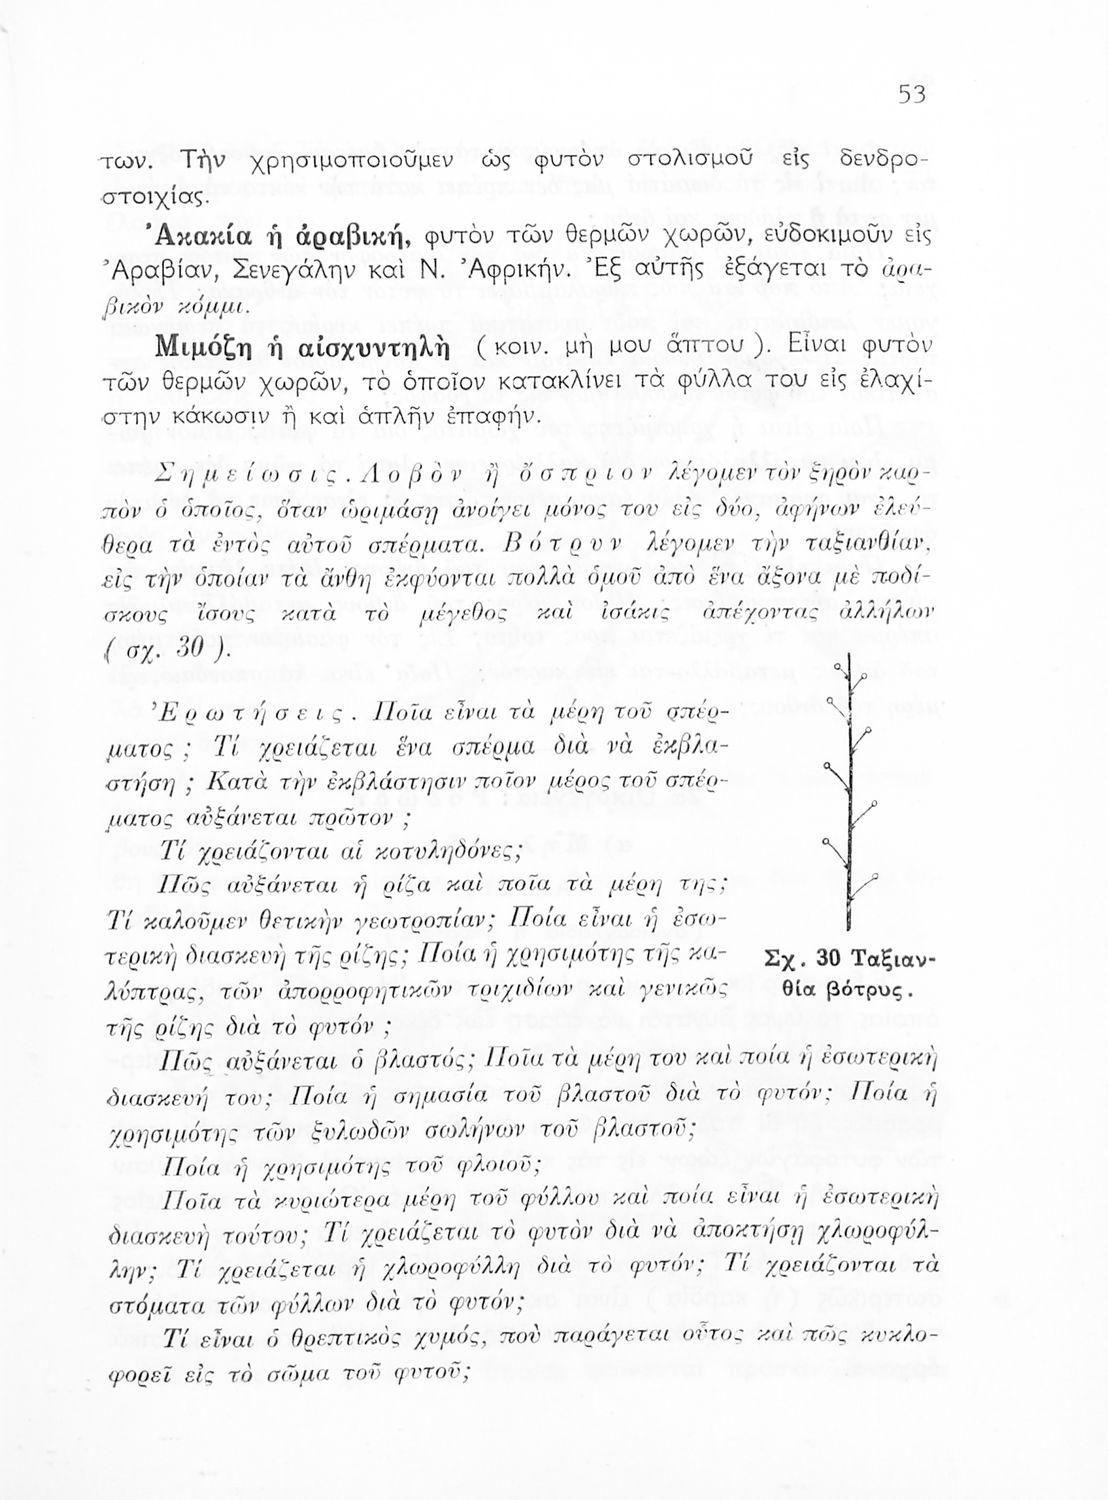 53
των. Τὴν χρησιμοποιοῦμεν ὡς φυτὸν στολισμοῦ εἰς δενδρο-
στοιχίας.
Ἀκακία ἡ ἀραβική, φυτὸν τῶν θερμῶν χωρῶν, εὐδοκιμοῦν εἰς
Ἀραβίαν, Σενεγάλην καὶ Ν. Ἀφρικήν. Ἐξ αὐτῆς ἐξάγεται τὸ ἀρα-
βικὸν κόμμι.
Μιμόζη ἡ αἰσχυντηλὴ ( κοιν. μὴ μου ἅπτου ). Εἶναι φυτὸν
τῶν θερμῶν χωρῶν, τὸ ὁποῖον κατακλίνει τὰ φύλλα του εἰς ἐλαχί-
στην κάκωσιν ἢ καὶ ἁπλῆν ἐπαφήν.
Σημείωσις. Λοβὸν ἢ ὄσπριον λέγομεν τὸν ξηρὸν καρ-
πὸν ὁ ὁποῖος, ὅταν ὡριμάσῃ ἀνοίγει μόνος του εἰς δύο, ἀφήνων ἐλεύ-
θερα τὰ ἐντὸς αὐτοῦ σπέρματα. Βότρυν λέγομεν τὴν ταξιανθίαν,
εἰς τὴν ὁποίαν τὰ ἄνθη ἐκφύονται πολλὰ ὁμοῦ ἀπὸ ἕνα ἄξονα μὲ ποδί-
σκους ἴσους κατὰ τὸ μέγεθος καὶ ἰσάκις ἀπέχοντας ἀλλήλων
( σχ. 30 ).
Ἐρωτήσεις. Ποῖα εἶναι τὰ μέρη τοῦ σπέρ-
ματος ; Τί χρειάζεται ἕνα σπέρμα διὰ νὰ ἐκβλα-
στήσῃ ; Κατὰ τὴν ἐκβλάστησιν ποῖον μέρος τοῦ σπέρ-
ματος αὐξάνεται πρῶτον ;
Τί χρειάζονται αἱ κοτυληδόνες;
Πῶς αὐξάνεται ἡ ρίζα καὶ ποῖα τὰ μέρη της;
Τί καλοῦμεν θετικὴν γεωτροπίαν; Ποία εἶναι ἡ ἐσω-
τερικὴ διασκευὴ τῆς ρίζης; Ποία ἡ χρησιμότης τῆς κα-
λύπτρας, τῶν ἀπορροφητικῶν τριχιδίων καὶ γενικῶς
τῆς ρίζης διὰ τὸ φυτόν ;
Σχ. 30 Ταξιαν-
θία βότρυς.
Πῶς αὐξάνεται ὁ βλαστός; Ποῖα τὰ μέρη του καὶ ποία ἡ ἐσωτερικὴ
διασκευή του; Ποία ἡ σημασία τοῦ βλαστοῦ διὰ τὸ φυτόν; Ποία ἡ
χρησιμότης τῶν ξυλωδῶν σωλήνων τοῦ βλαστοῦ;
Ποία ἡ χρησιμότης τοῦ φλοιοῦ;
Ποῖα τὰ κυριώτερα μέρη τοῦ φύλλου καὶ ποία εἶναι ἡ ἐσωτερικὴ
διασκευὴ τούτου; Τί χρειάζεται τὸ φυτὸν διὰ νὰ ἀποκτήσῃ χλωροφύλ-
λην; Τί χρειάζεται ἡ χλωροφύλλη διὰ τὸ φυτόν; Τί χρειάζονται τὰ
στόματα τῶν φύλλων διὰ τὸ φυτόν;
Τί εἶναι ὁ θρεπτικὸς χυμός, ποὺ παράγεται οὗτος καὶ πῶς κυκλο-
φορεῖ εἰς τὸ σῶμα τοῦ φυτοῦ;